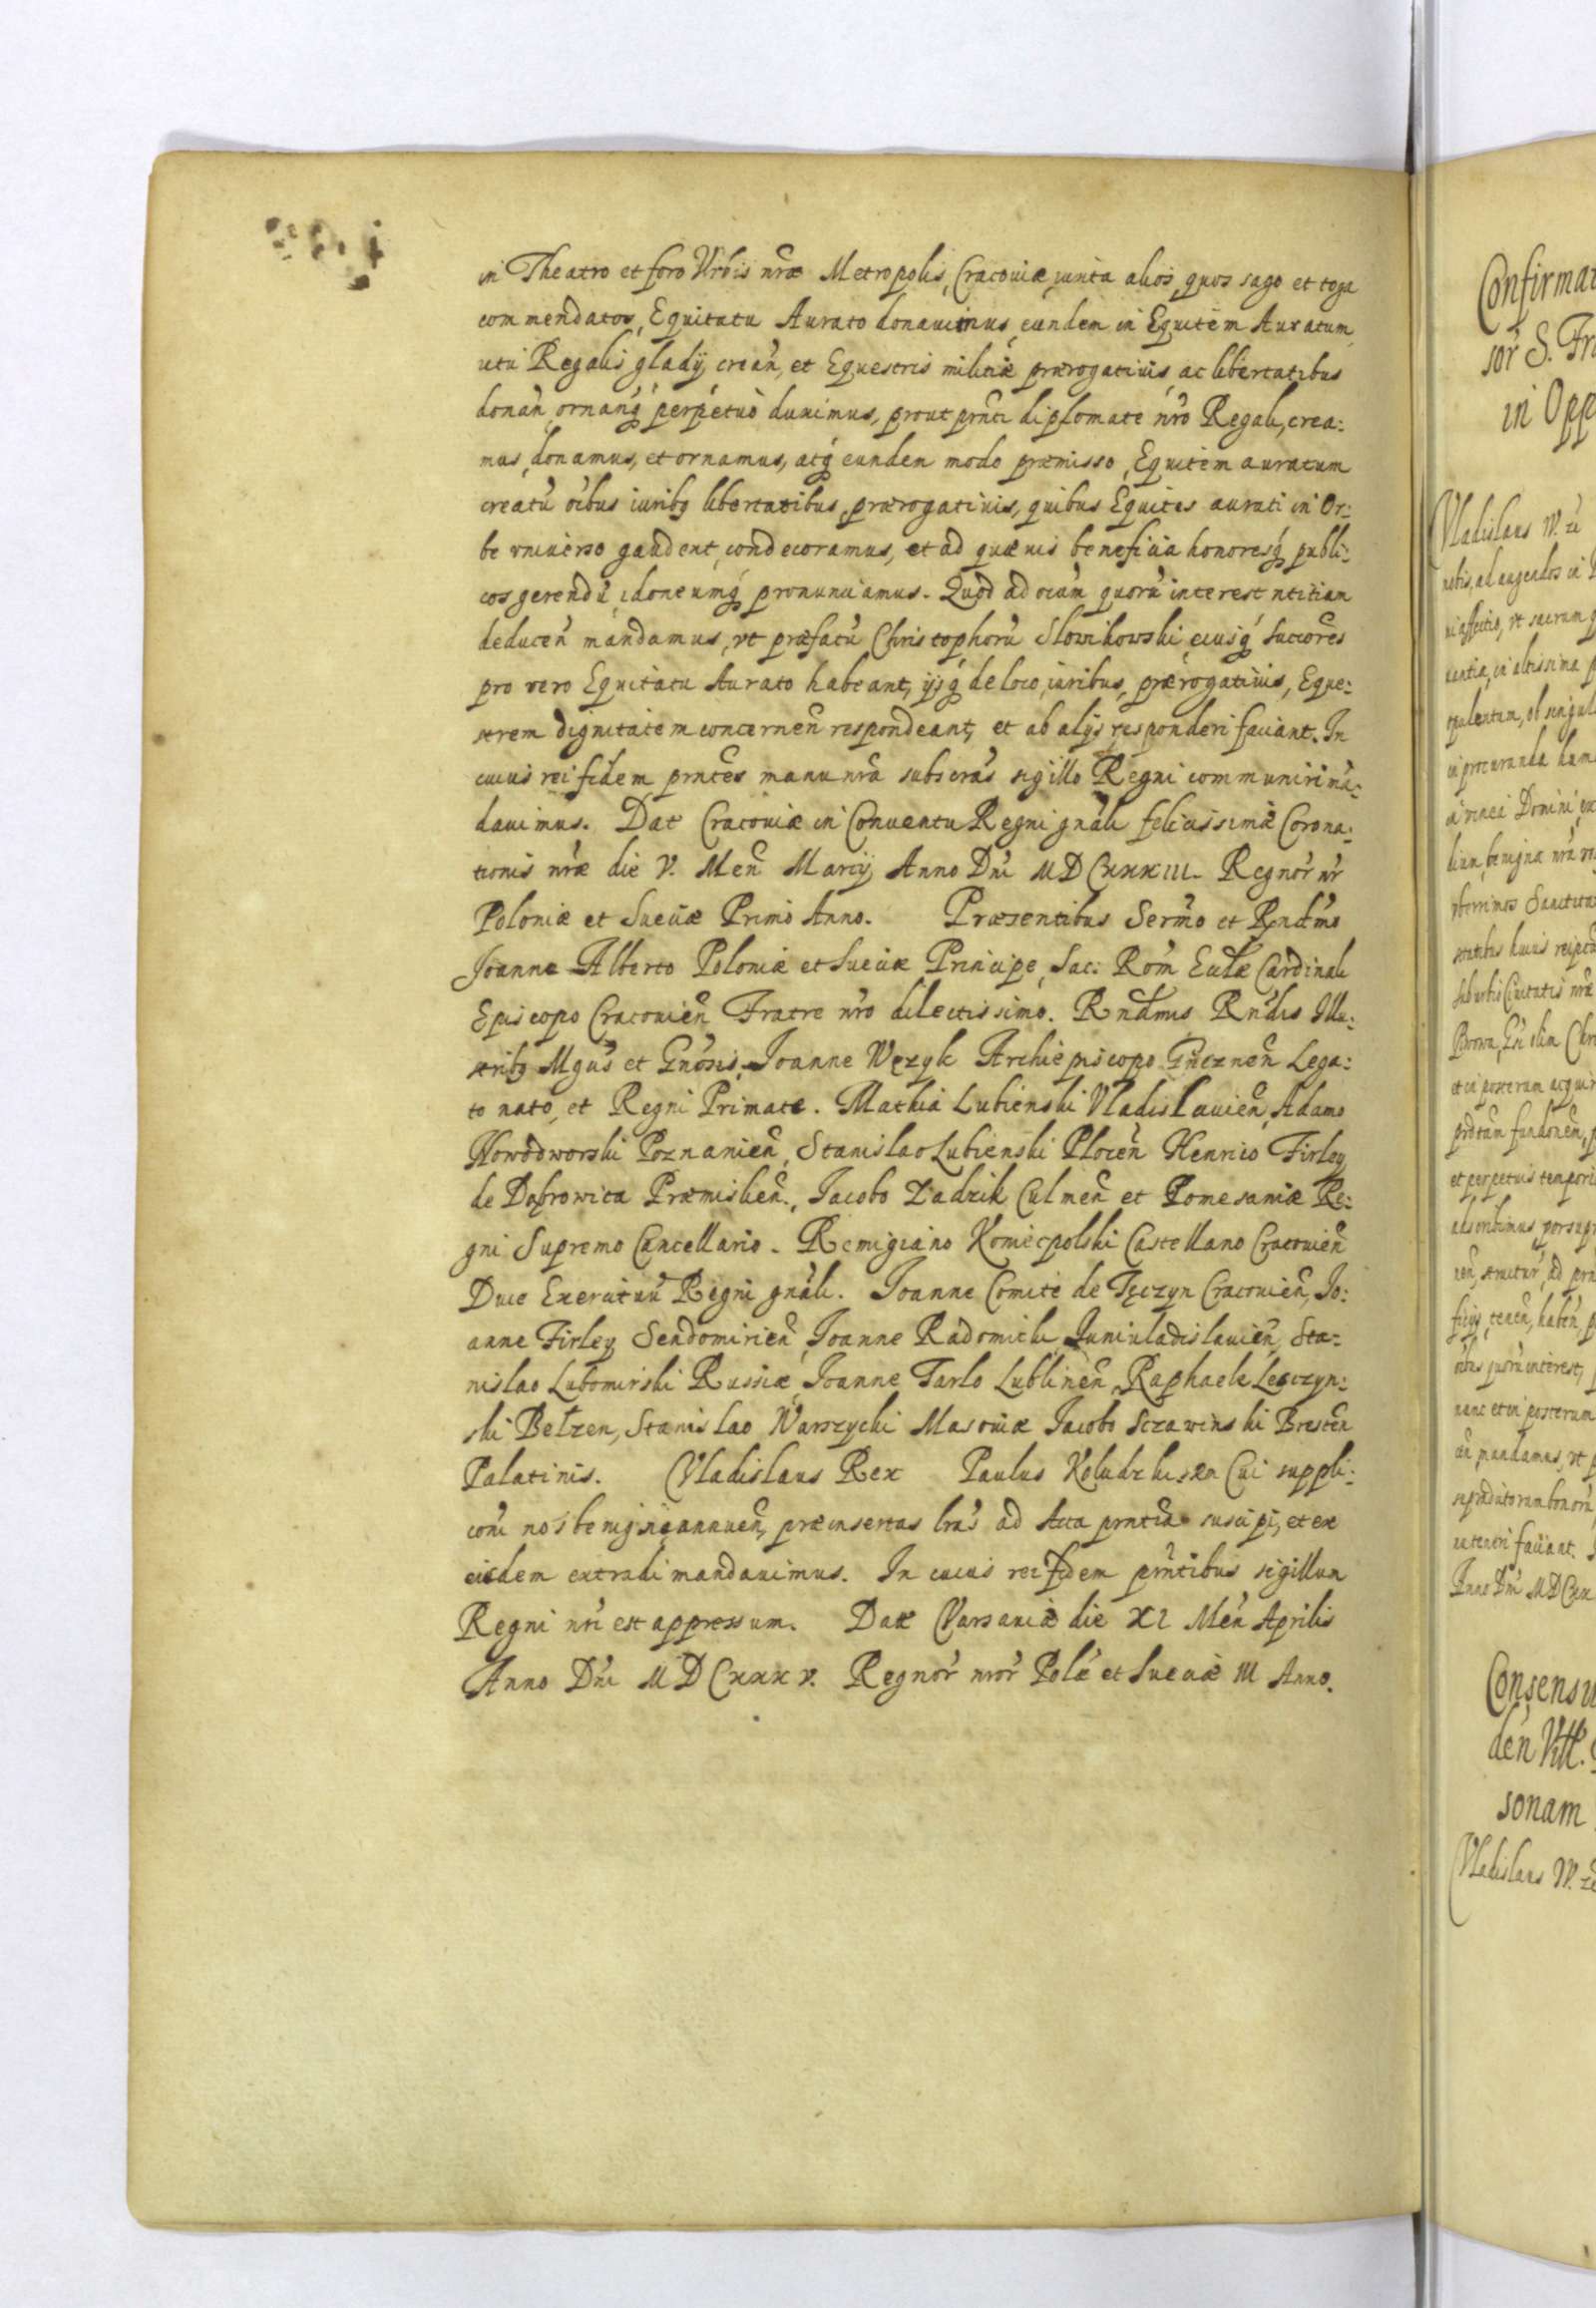 in Theatro et foro Urbis nr̃æ Metropolis, Cracoviæ, iuxta alios, quos sago et toga
commendatos, Equitatu Aurato donavimus, eundem in Equitem Auratum
uti Regalis gladij, crean̄, et Equestris militiæ prærogativis, ac libertatibus
donan̄, ornanq́ perpetuò duximus, prout prn̄ti diplomate nr̄o Regali, crea:
mus, donamus, et ornamus, atq́ eundem modo præmisso, Equitem auratum
creatū oībus iuribq libertatibus, prærogativis, quibus Equites aurati in Or:
be universo gaudent, condecoramus, et ad quævis beneficia honoresq́ publi:
cos gerendū idoneumq́ pronunciamus. Quod ad oīum quorū interest ntitiam
deducen̄ mandamus, vt præfatū Christophorū Slowikowski eiusq́ successores
pro vero Equitatu Aurato habeant, ijsq́ de loco, iuribus, prærogativis, Eque:
strem dignitatem concernen̄ respondeant, et ab alijs responderi faciant. In
cuius rei fidem prn̄tes manu nr̄a subscras sigillo Regni communiri mā:
davimus. Dat Cracoviæ in Conventu Regni gnāli felicissimæ Corona:
tionis nr̄æ die V. Men̄ Marcij Anno Dn̄i MDCXXXIII. Regnor̄ nr̄
Poloniæ et Sueciæ Primo Anno. Præsentibus Serm̄o et Rn̄dmo
Joanne Alberto Poloniæ et Sueciæ Principe, Sac: Rom̄ Eccl̄æ Cardinali
Episcopo Cracovien̄ Fratre nr̄o dilectissimo. Rn̄dmis Rn̄dis Illu:
stribq Mgcis et Gnōsis, Joanne Wężyk Archiepiscopo Gneznen̄ Lega:
to nato, et Regni Primate. Mathia Lubienski Vladislavien̄, Adamo
Nowodworski Poznanien̄, Stanislao Lubienski Plocen̄ Henrico Firley
de Dąbrowica Præmislien̄., Jacobo Zadzik Culmen̄ et Pomesaniæ Re:
gni Supremo Cancellario. Remigiano Koniecpolski Castellano Cracovien̄
Duce Exercituū Regni gnāli. Joanne Comite de Tęczyn Cracovien̄, Jo:
anne Firley Sendomirien̄, Joanne Radomicki Juniuladislavien̄, Sta:
nislao Lubomirski Russiæ, Joanne Tarlo Lublinen̄, Raphaele Lesczyn:
ski Belzen, Stanislao Warszycki Masoviæ Jacobo Sczawinski Bresten
Palatinis. Vladislaus Rex Paulus Koludzki Cui suppli:
coni nos benigne annuen̄, præinsertas lrās ad Acta prn̄tia suscipi, et ex
eisdem extradi mandavimus. In cuius rei fidem prn̄tibus sigillum
Regni nr̄i est appressum. Datæ Varsaviæ die XI Men̄ Aprilis
Anno Dn̄i MDCXXXV. Regnor̄ nror̄ Polæ et Sueciæ III Anno.
Confirmat
sor̄ S. Fr
in Opp
Vladislaus IV. zc
Brown,
Anno Dn̄i MDCXX
Consensu
den̄ Vill.
sonam
Vladislaus IV. zc